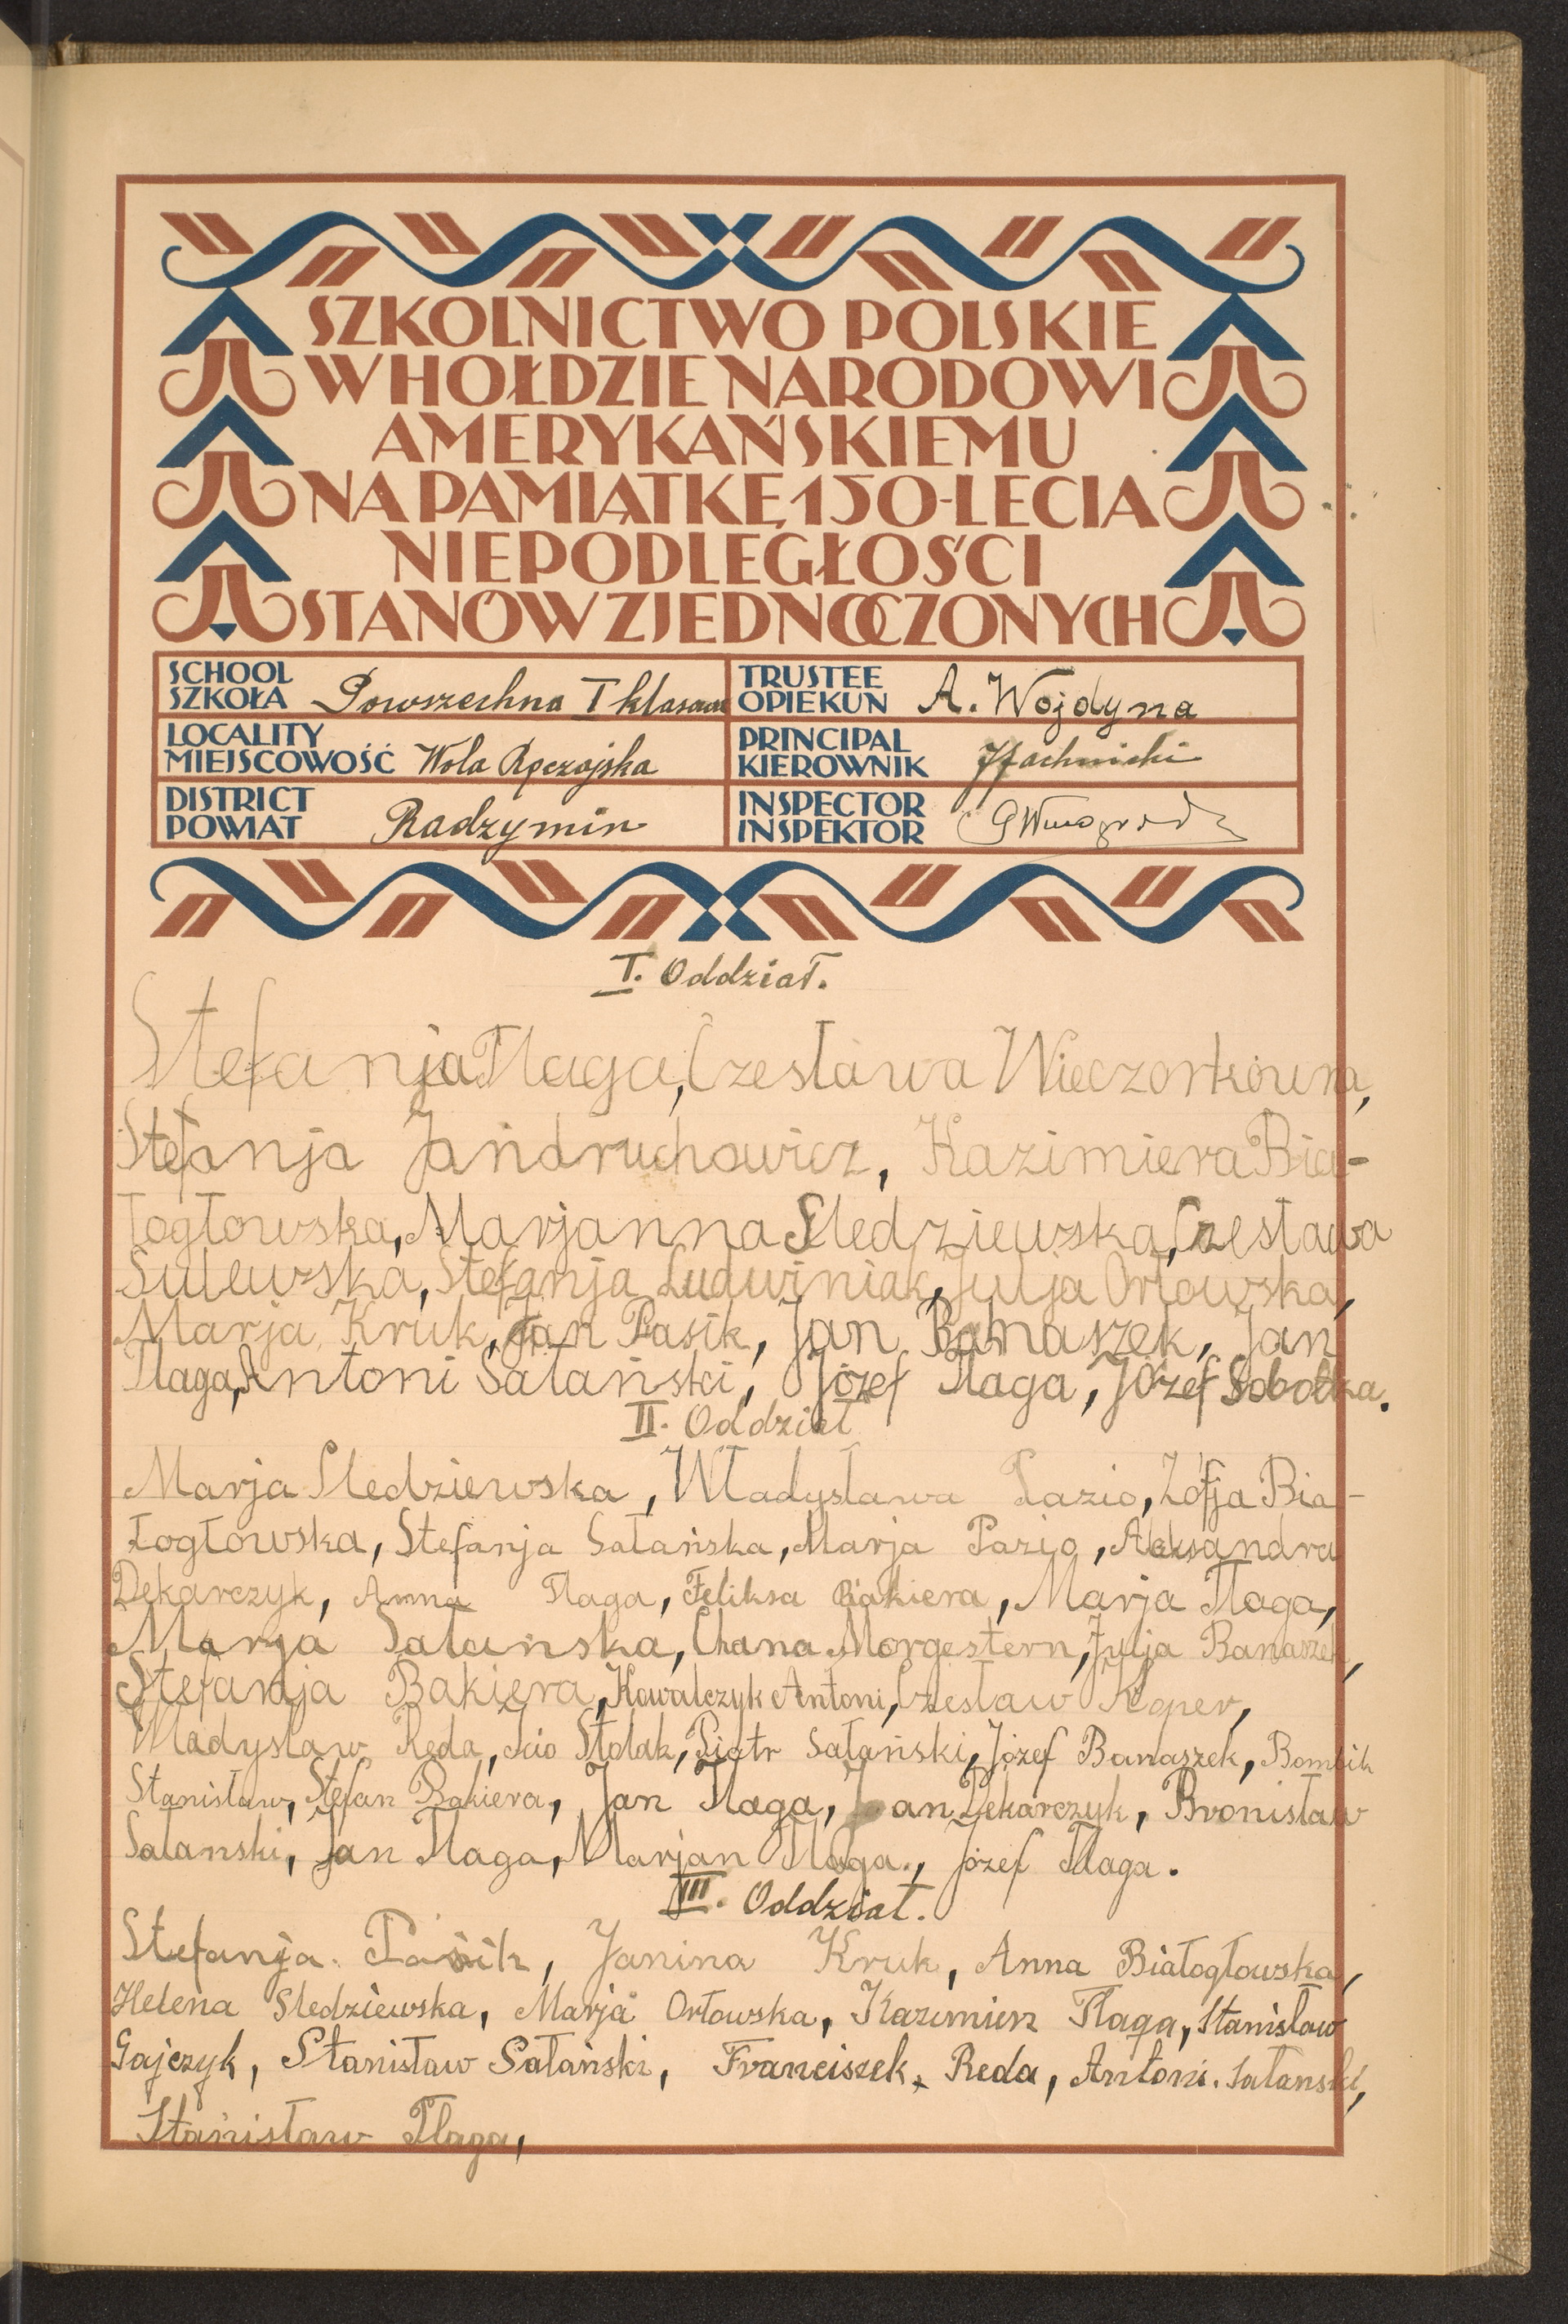 SZKOLNICTWO POLSKIE
W HOŁDZIE NARODOWI
AMERYKAŃSKIEMU
NA PAMIĄTKĘ 150-LECIA
NIEPODLEGŁOŚCI
STANÓW ZJEDNOCZONYCH
SCHOOL
SZKOŁA Powszechna I klasowa
TRUSTEE
OPIEKUN A. Wojdyna
LOCALITY
MIEJSCOWOŚĆ Wola Ręczajska
PRINCIPAL
KIEROWNIK
DISTRICT
POWIAT Radzymin
INSPECTOR
INSPEKTOR
I. Oddział.
Stefanja Płaga, Czesława Wieczorkówna,
Stefanja Jandruchowicz, Kazimiera Bia-
łogłowska, Marjanna Sledziewska, Czesława
Sulewska, Stefanja Ludwiniak, Julja Orłowska,
Marja Kruk, Jan Pasik, Jan Banaszek, Jan
Płaga, Antoni Sałański, Józef Płaga, Józef Sobotka.
II. Oddział
Marja Sledziewska, Władysława Pazio, Zofja Bia-
łogłowska, Stefanja Sałańska, Marja Pazio, Aleksandra
Dekarczyk, Anna Płaga, Feliksa Bakiera, Marja Płaga,
Marja Sałańska, Chana Morgestern, Julja Banaszek,
Stefanja Bakiera, Kowalczyk Antoni, Czesław Koper,
Władysław Ręda, Stolak, Piotr Sałański, Józef Banaszek, Bombik
Stanisław, Stefan Bakiera, Jan Płaga, Jan Dekarczyk, Bronisław
Salanski, Jan Płaga, Marjan Płaga, Józef Płaga.
III. Oddział.
Stefanja Pasik, Janina Kruk, Anna Białogłowska,
Helena Sledziewska, Marja Orłowska, Kazimierz Płaga, Stanisław
Gajczyk, Stanisław Sałański, Franciszek Reda, Antoni Sałanski,
Stanisław Płaga,